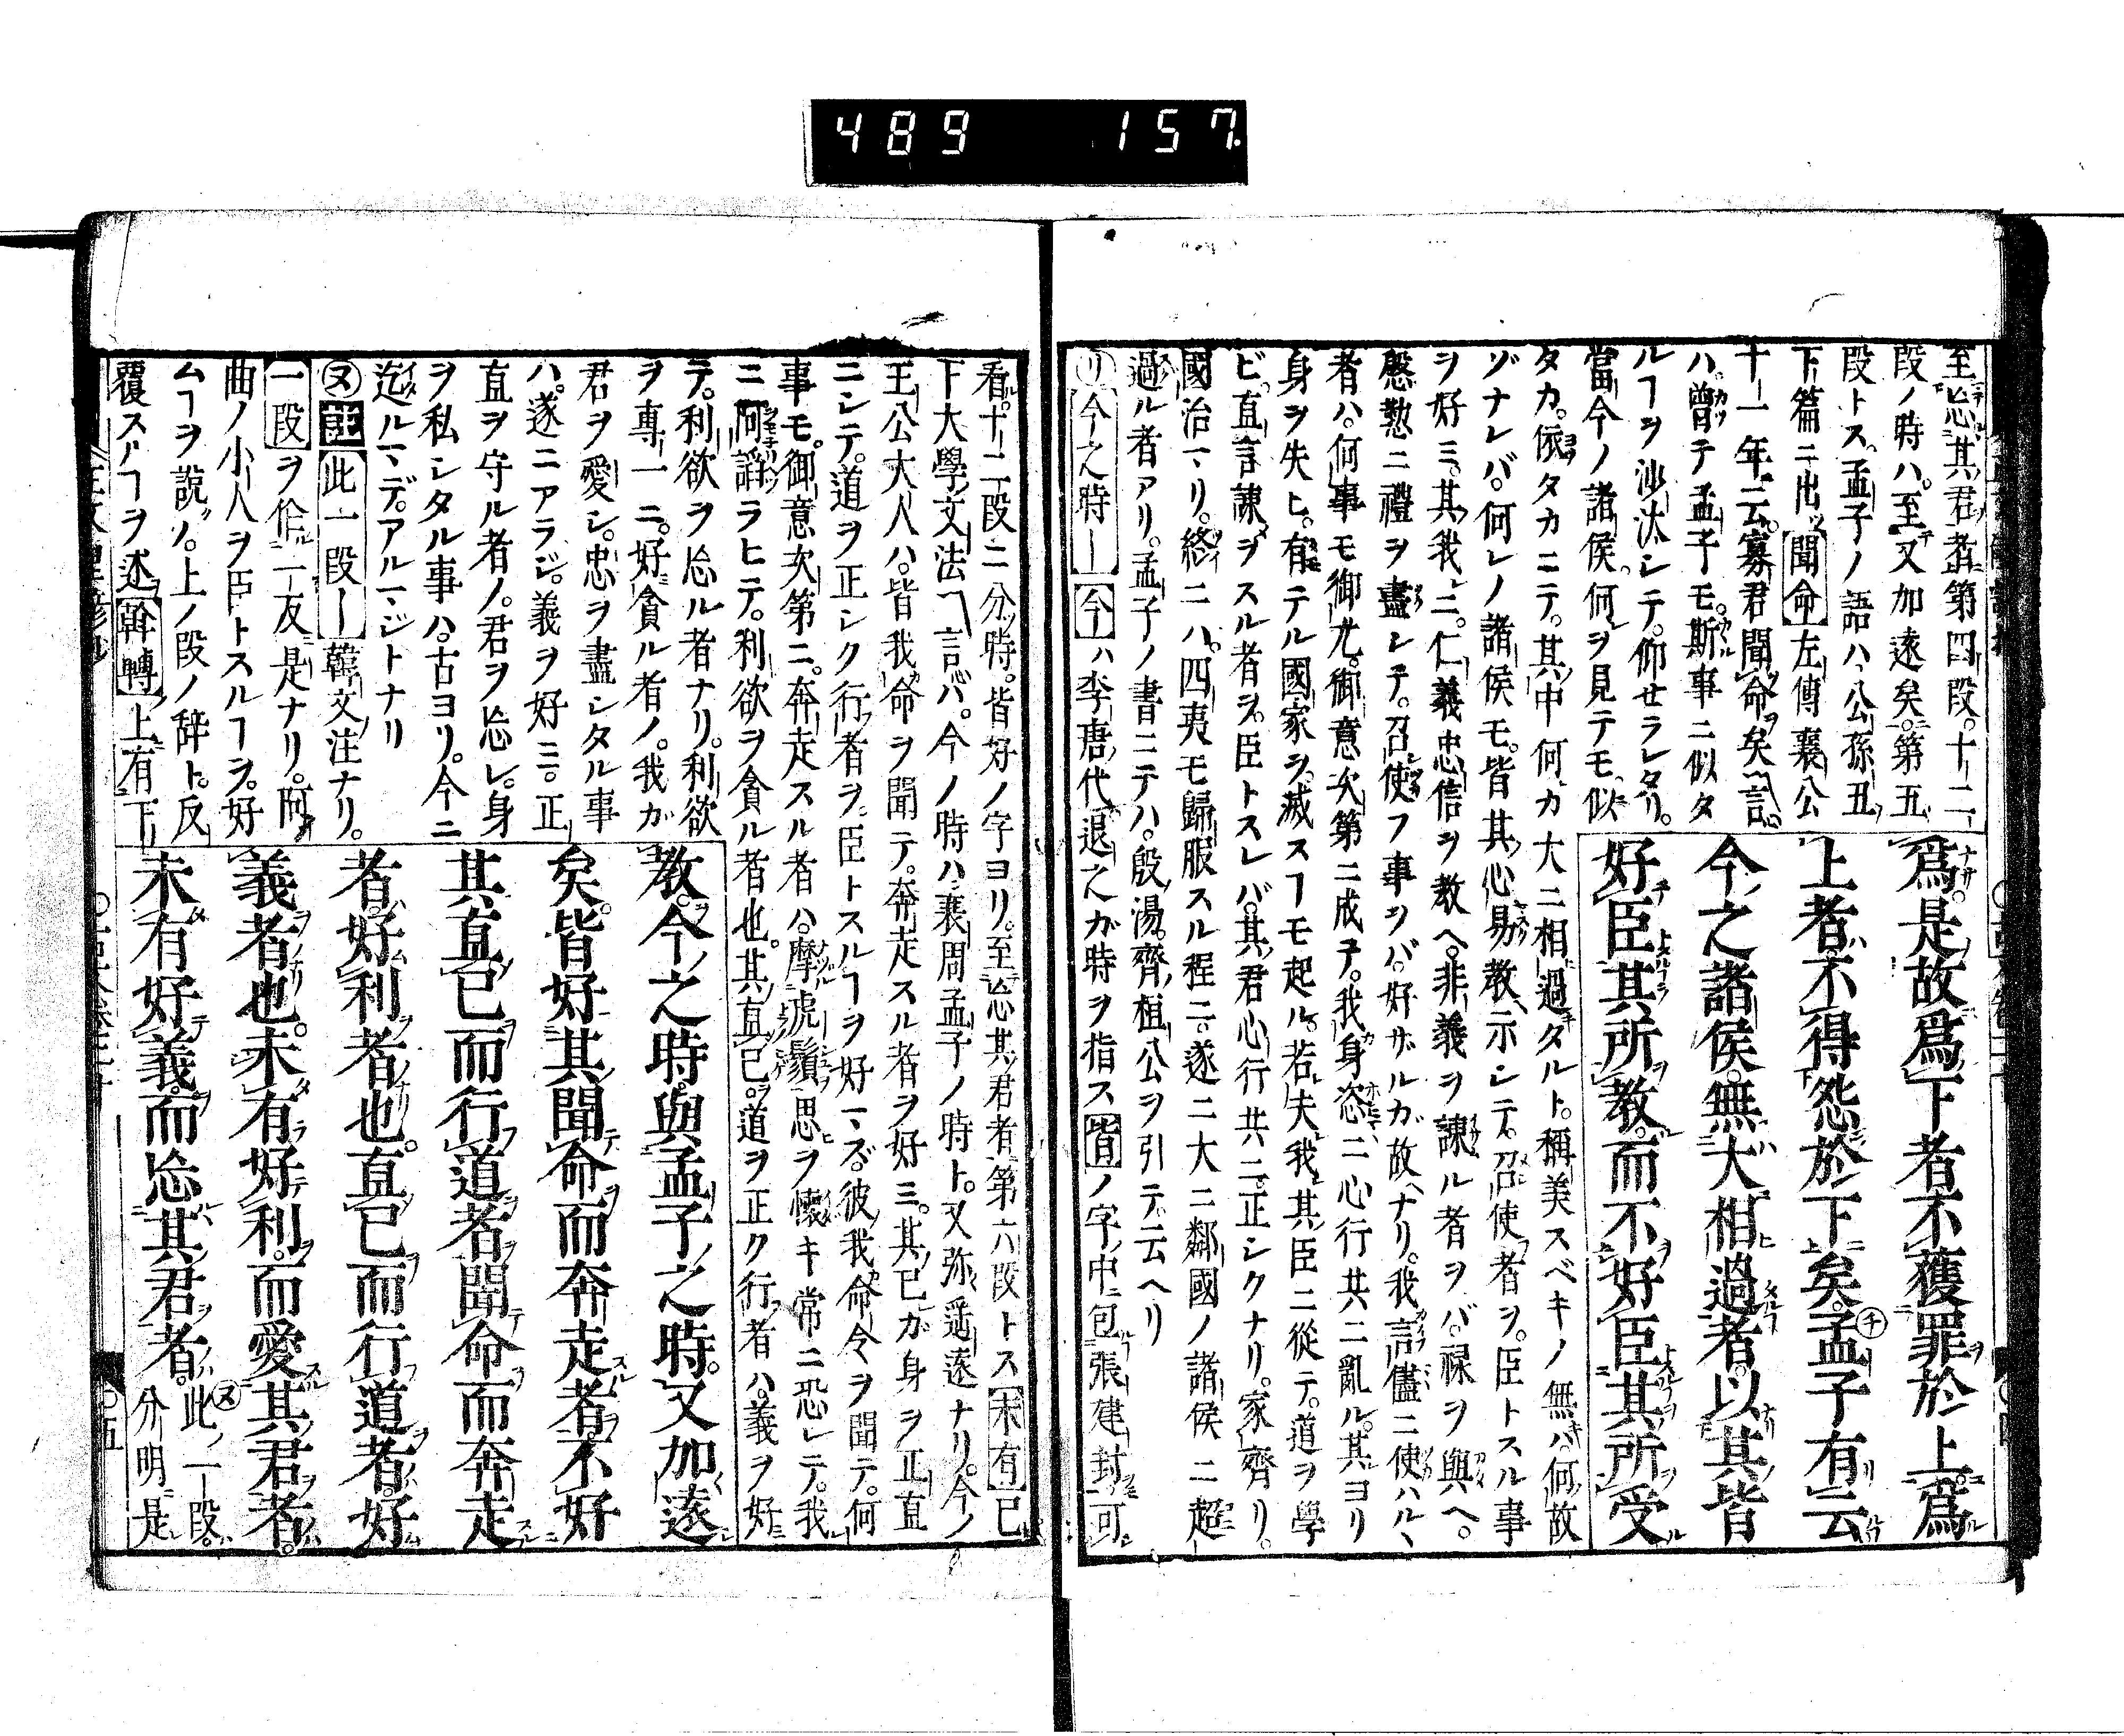 489 157
至忘其君者第四段。十二
段ノ時ハ。至又加遠矣。第五
段トス。孟子ノ語ハ、公孫丑
下篇ニ出 聞命 左傳襄公
十一年ニ云。寡君聞命矣 言ハ
ハ。曾テ孟子モ。斯事ニ似タ
ルヿヲ沙汰シテ。仰セラレタリ。
當今ノ諸侯。何レヲ見テモ。似
タカ。依タカニテ。其中何カ大ニ相過タルト。稱美スベキノ無ハ。何故
ゾナレバ。何レノ諸侯モ。皆其心易教ヘ示シテ。召使者ヲ。臣トスル事
ヲ好ミ。其我ニ。仁義忠信ヲ教ヘ。非義ヲ諫ル者ヲバ。禄ヲ與ヘ。
慇懃ニ禮ヲ盡シテ。召使フ事ヲバ。好ザルガ故ナリ。我言儘ニ使ハルヽ
者ハ。何事モ御尤。御意次第ニ成ヲ。我身恣ニ心行共ニ亂ル。其ヨリ
身ヲ失ヒ。有テル國家ヲ。滅スヿモ起ル。若夫我其臣ニ從テ。道ヲ學
ビ。直言諫ヲスル者ヲ。臣トスレバ。其君心行共ニ。正シクナリ。家齊リ。
國治マリ。終ニハ。四夷モ歸服スル程ニ。遂ニ大ニ鄰國ノ諸侯ニ超
過ル者アリ。孟子ノ書ニテハ。殷湯。齊桓公ヲ引テ云ヘリ
リ 今之時ー 今ー ハ李唐代退之ガ時ヲ指ス 皆 ノ字中ニ包張建封可
爲。是故爲下者不獲罪於上。爲
上者。不得怨於下矣。チ孟子有云
今之諸侯。無大相過者。以其皆
好臣其所教。而不好臣其所受
看。十二段ニ分時。皆好ノ字ヨリ。至忘其君者第六段トス 未有 已
下大學文法 言ハ。今ノ時ハ、襄周孟子ノ時ト。又弥遥遠ナリ。今ノ
王公大人ハ。皆我命ヲ聞テ。奔走スル者ヲ好ミ。其已ガ身ヲ正直
ニシテ。道ヲ正シク行者ヲ。臣トスルヿヲ好マズ。彼我命令ヲ聞テ。何
事モ。御意次第ニ。奔走スル者ハ。摩虎鬚思ヲ懐キ常ニ恐レテ。我
ニ阿諂ラヒテ。利欲ヲ貪ル者也。其直已。道ヲ正ク行者ハ。義ヲ好
テ。利欲ヲ忘ル者ナリ。利欲
ヲ專一ニ。好貪ル者ノ。我ガ
君ヲ愛シ。忠ヲ盡シタル事
ハ。遂ニアラジ。義ヲ好ミ。正
直ヲ守ル者ノ。君ヲ忘レ。身
ヲ私シタル事ハ。古ヨリ。今ニ
迄ルマデ。アルマジトナリ
ヌ 註 此一段ー 韓文注ナリ。
一段 ヲ作一反是ナリ。阿
曲ノ小人ヲ臣トスルヿヲ。好
ムヿヲ說ク。上ノ段ノ辞ト。反
覆スルヿヲ述 幹轉 上有下
教。今之時。與孟子之時。又加遠
矣。皆好其聞命而奔走者。不好
其直已而行道者。聞命而奔走
者。好利者也。直已而行道者。好
義者也。未有好利。而愛其君者。
未有好義。而忘其君者。ヌ此一段。
分明是
五